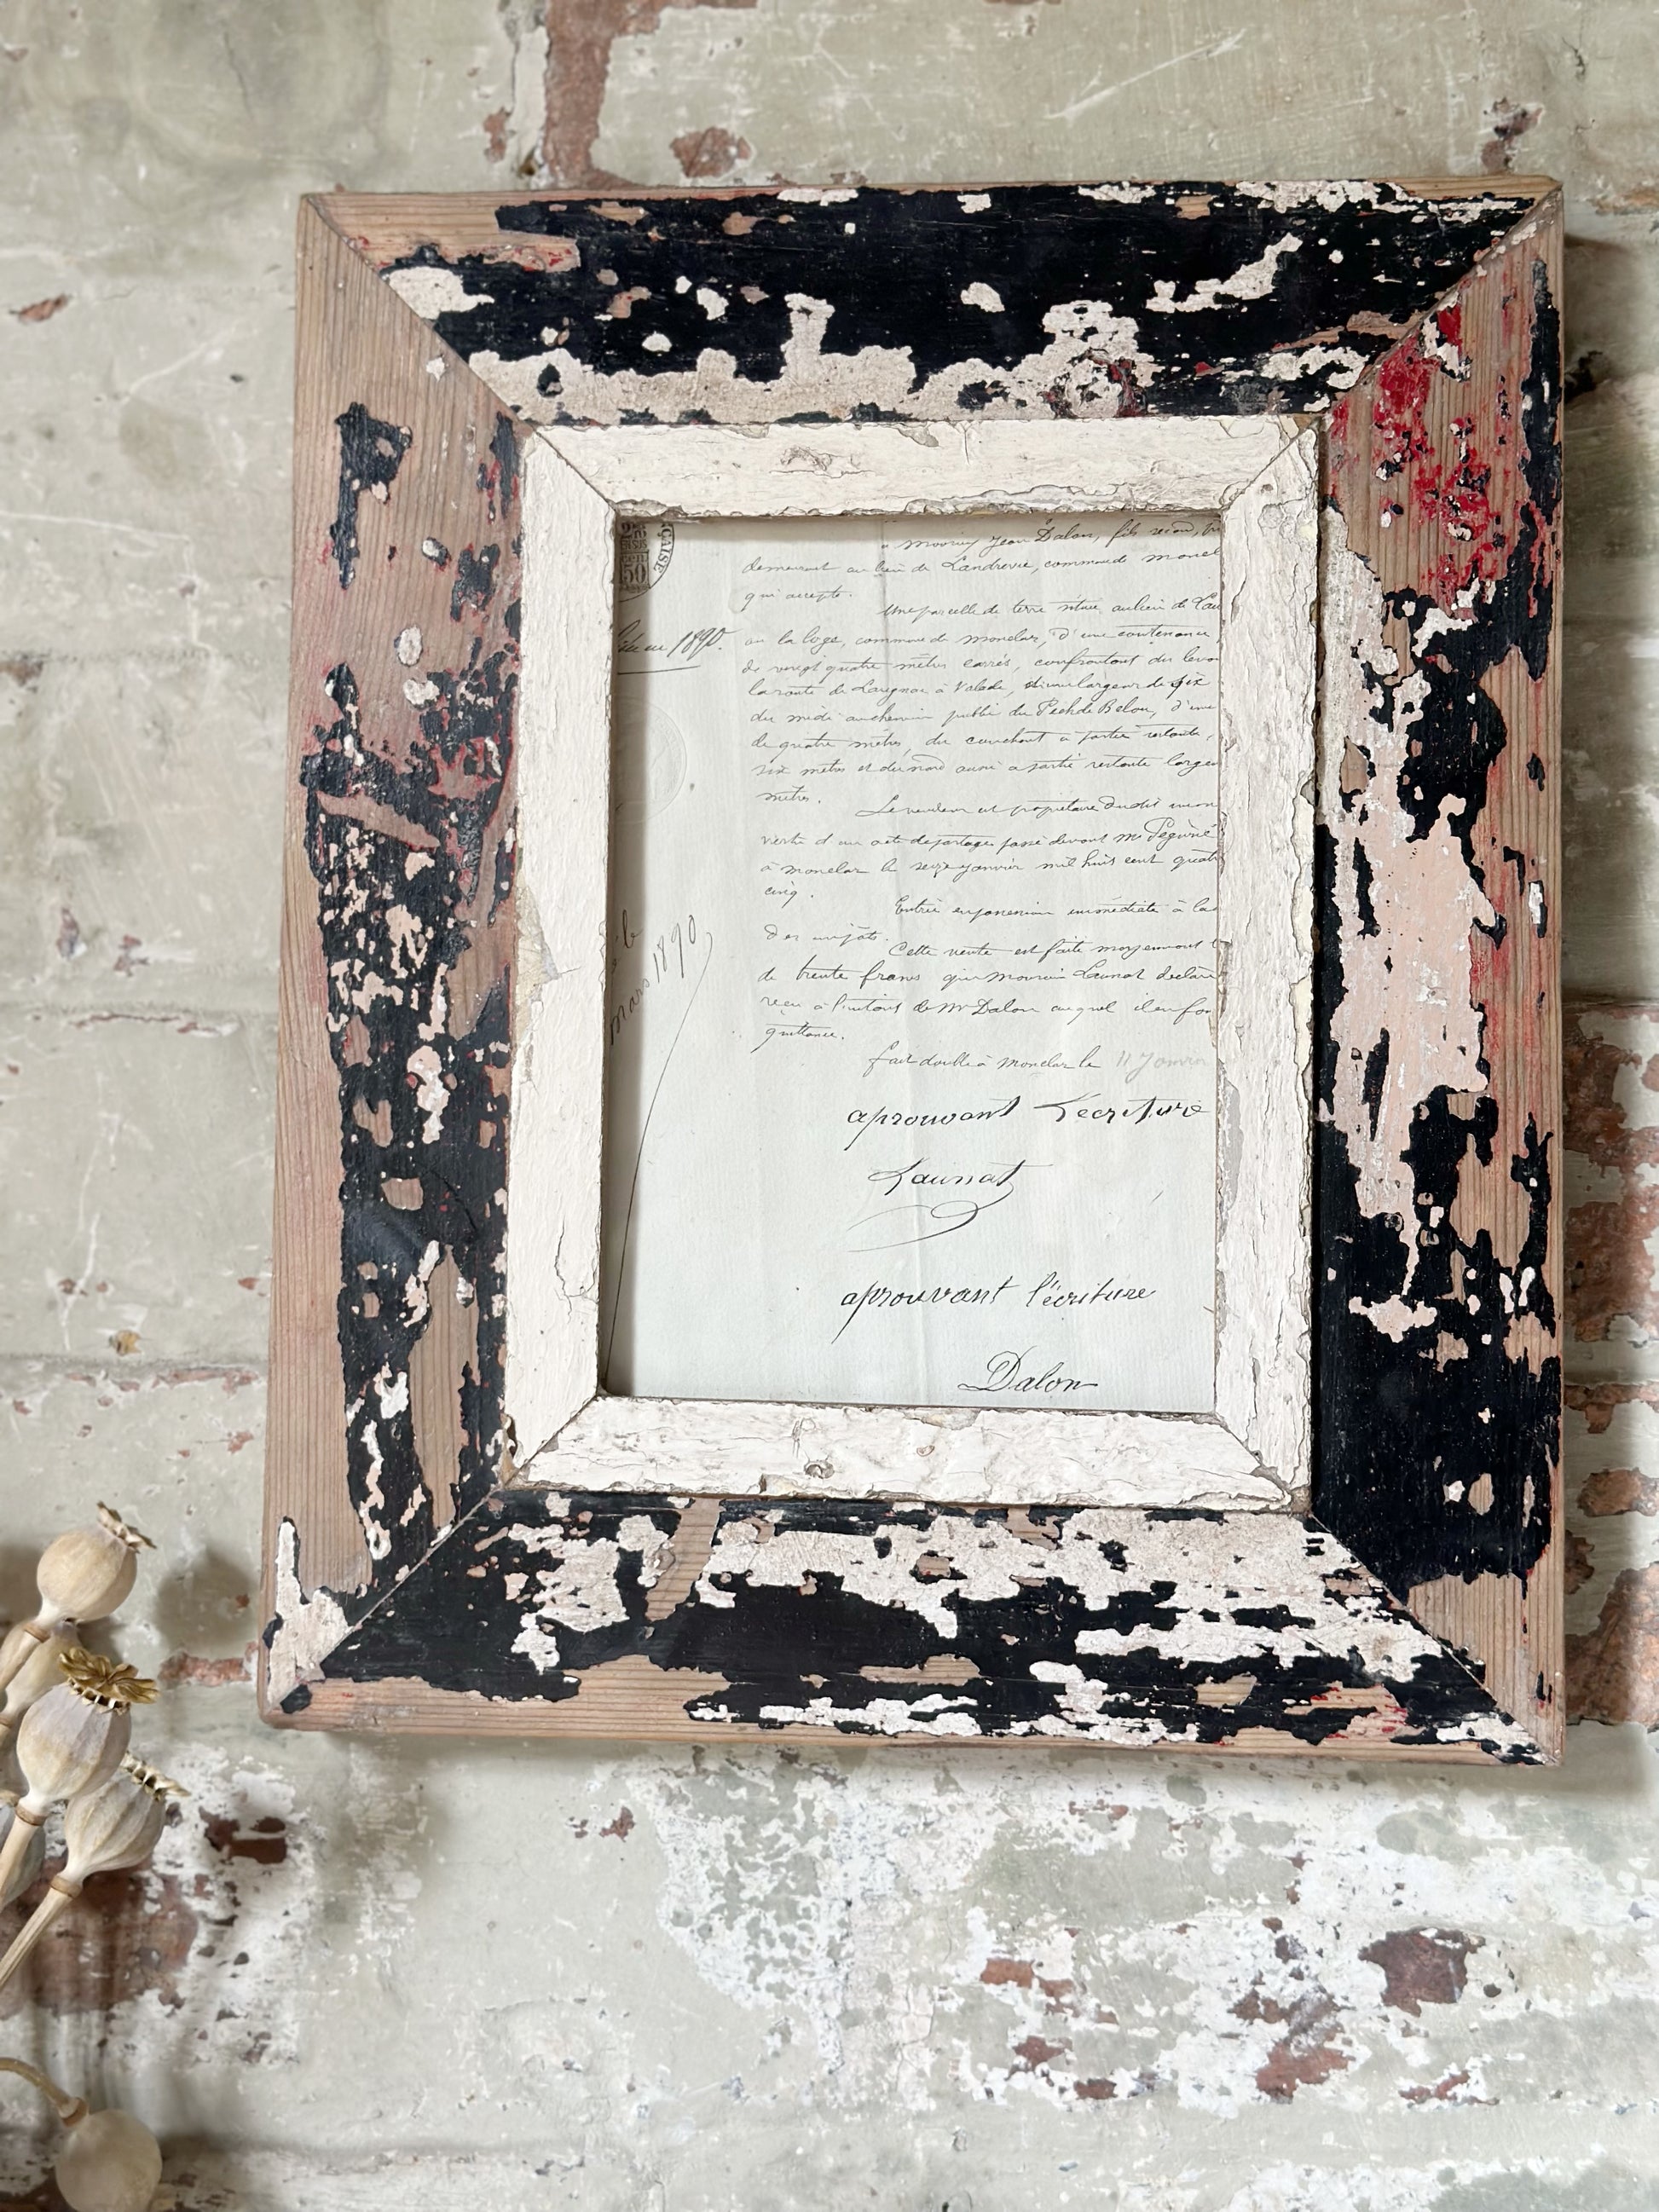 25
cen
50
ÇAISE
Jean Dalon, fils second,
demeurant au lieu de Landrevie, commune de moncl
qui accepte.
1890.
Une parcelle de terre située au lieu de
ou la loge, commune de monclar, d'une contenance
de vengt quatre mètres carrés, confrontant du leva
la route de à Valade, largeur de six
du midi au chemin public du Pech de Belou, d'une
de quatre mètres, du couchant a partie restante,
six mètres et du nord aussi a partie restante large
mètres.
Le vendeur est propriétaire dudit
acte de partage passé devant Me
à monclar le seize janvier mil huit cent quatr
cinq.
Entrée en immédiate à la
des impôts.
mars 1890
Cette vente est faite moyennant
de trente francs que Launat déclare
reçu à de Mr Dalon auquel il en
quittance.
fait double à monclar le 11 Janvi
aprouvant l'écriture
Launat
aprouvant l'écriture
Dalon